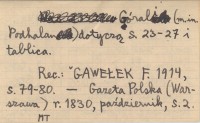 Górali (m.in.
Podhalan) dotyczą s. 23-27 i
tablica.
Rec.: GAWEŁEK F. 1914,
s. 79-80. — Gazeta Polska (War-
szawa) r. 1830, październik, s. 2.
MT